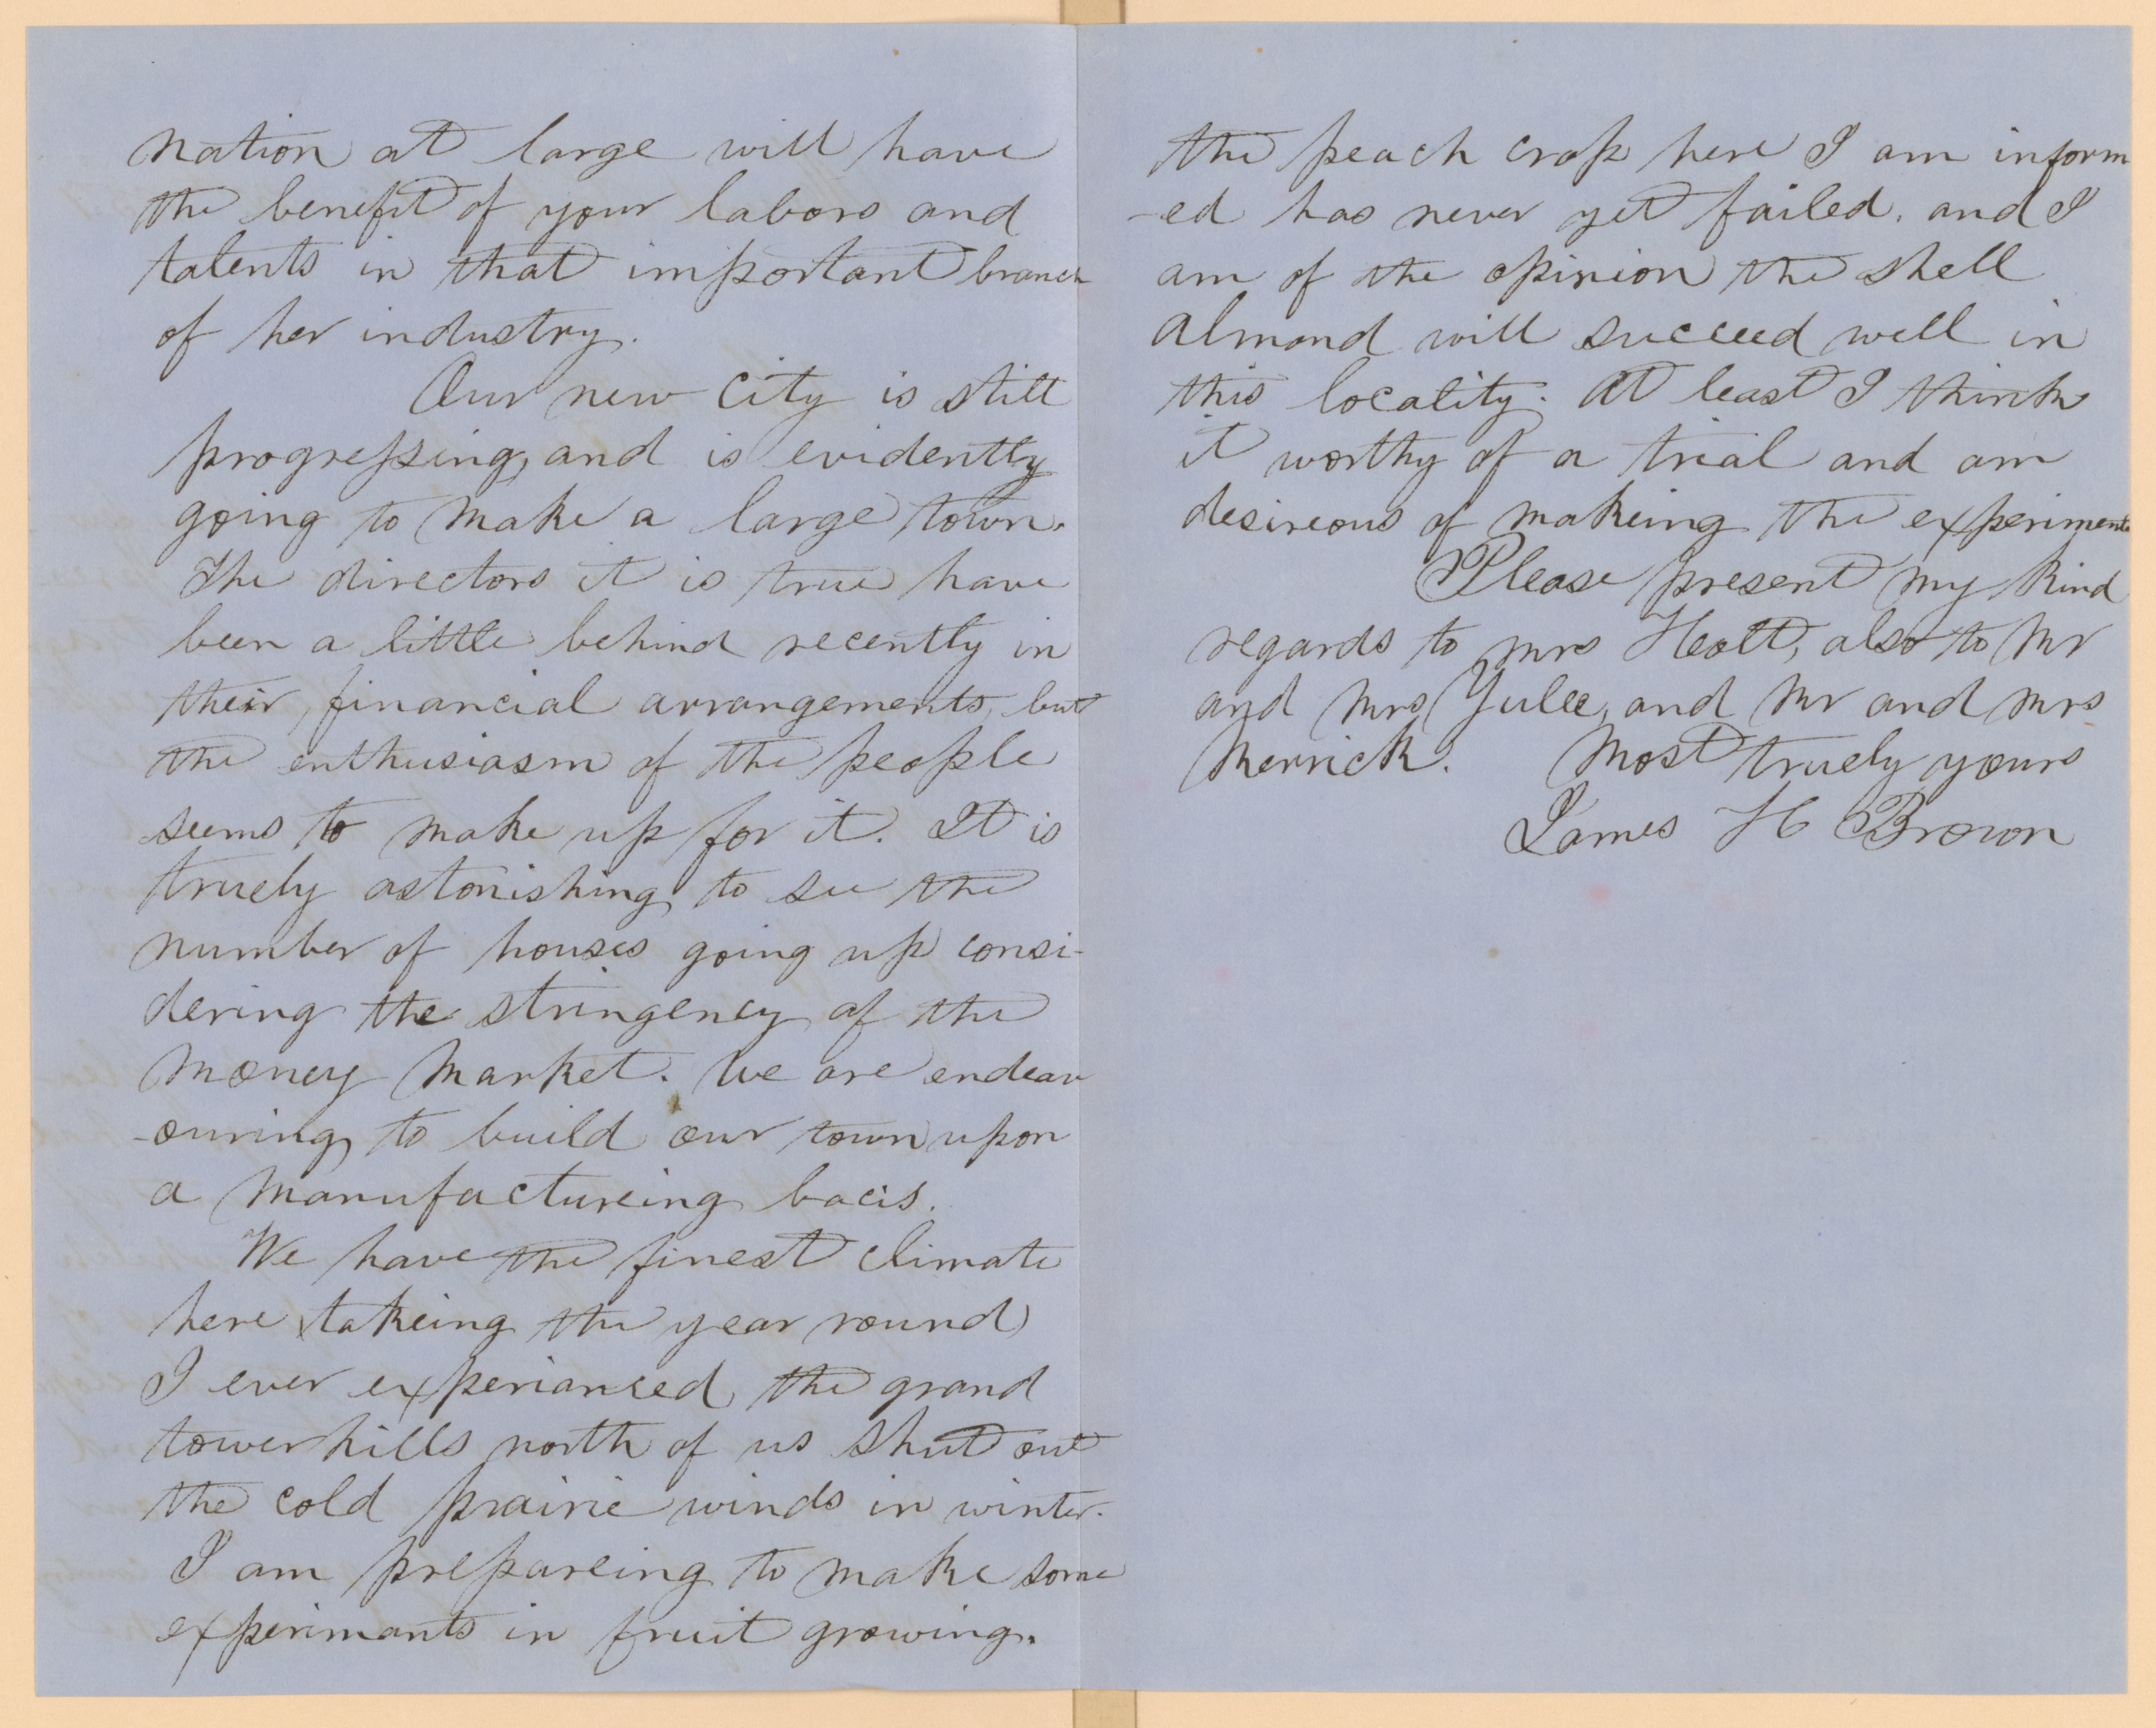 nation at large will have
the benefit of your labors and
talents in that important branch
of her industry.
Our new City is still
progressing, and is evidently
going to make a large town.
The directors it is true have
been a little behind recently in
their, financial arrangements, but
the enthusiasm of the people
seems to make up for it. It is
truely astonishing to see the
number of houses going up consi-
dering the stringency of the
money market. We are endeav
-ouring to build our town upon
a manufactureing bacis.
We have the finest climate
here takeing the year round
I ever experianced, the grand
tower hills north of us shut out
the cold prairie winds in winter.
I am prepareing to make some
experimants in fruit growing.
the peach crop here I am inform
-ed has never yet failed. and I
am of the opinion the shell
almond will succeed well in
this locality. At least I think
it worthy of a trial and am
desireous of makeing the experiment
Please present my kind
regards to mrs Holt, also to Mr
and Mrs Yulee, and Mr and Mrs
Merrick. Most truely yours
James H Brown